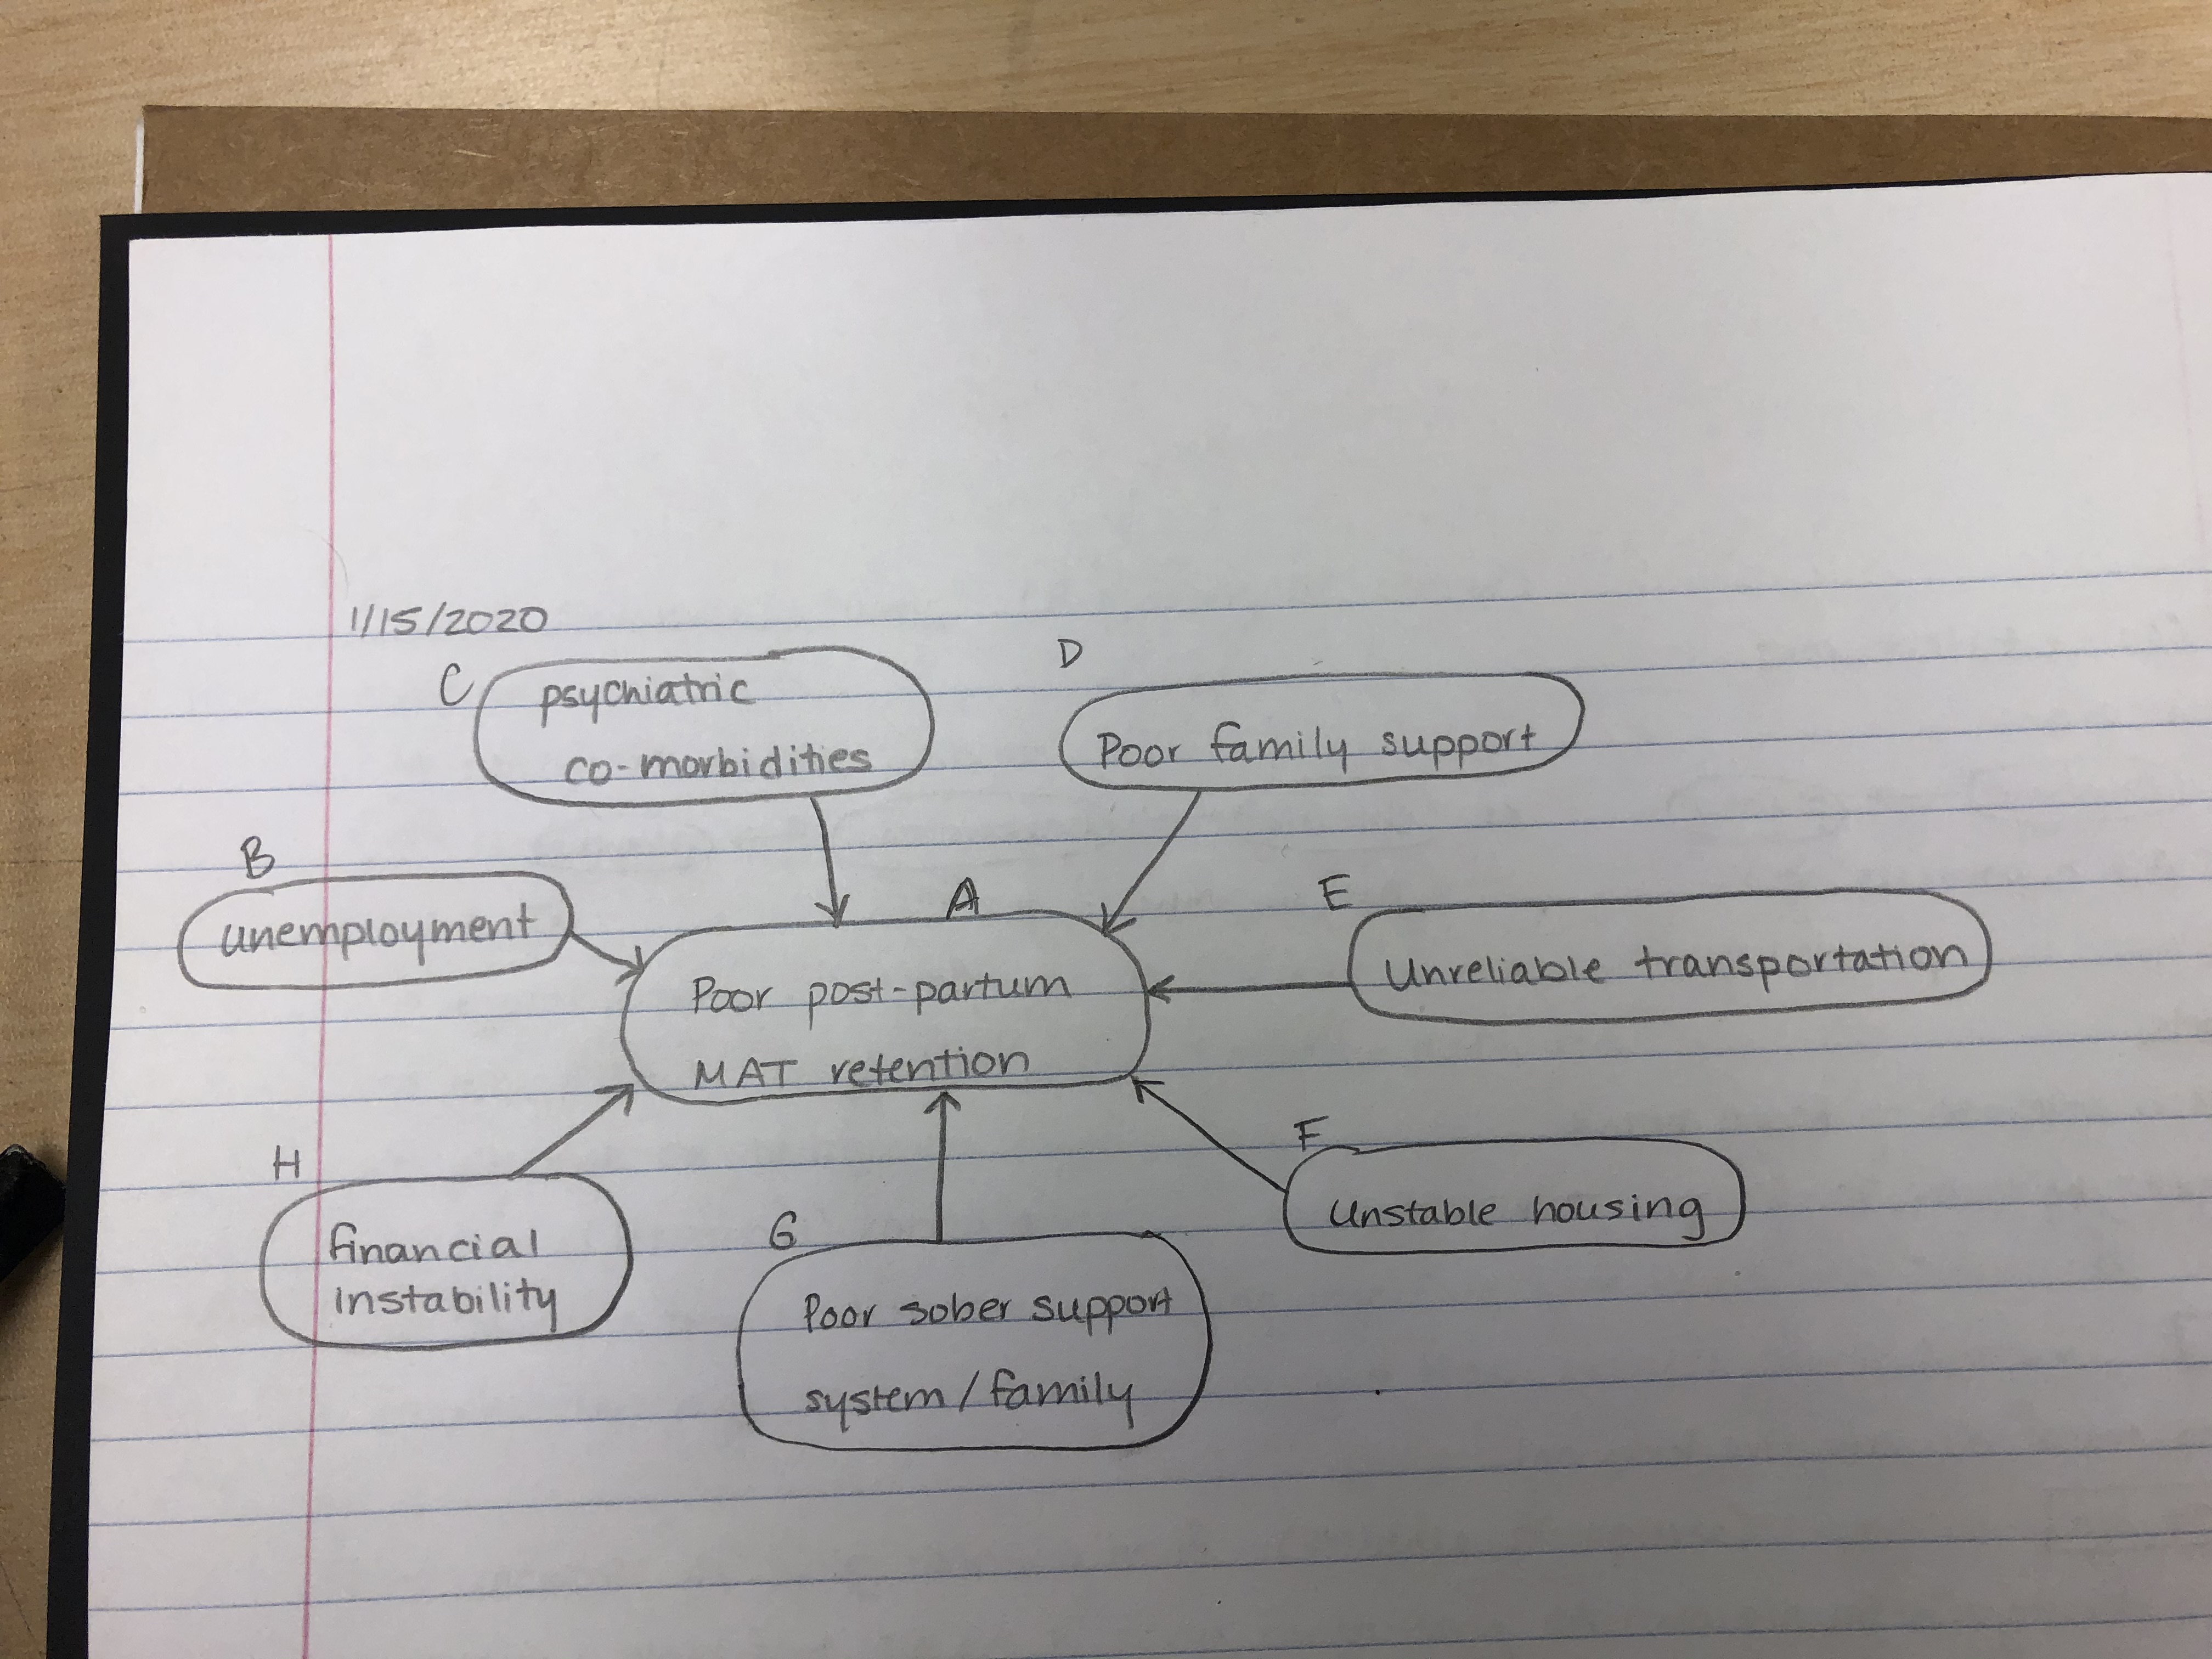 1/15/2020
C
psychiatric
co-morbidities
D
Poor family support
B
unemployment
A
Poor post-partum
MAT retention
E
Unreliable transportation
H
financial
instability
G
Poor sober support
system/family
F
Unstable housing